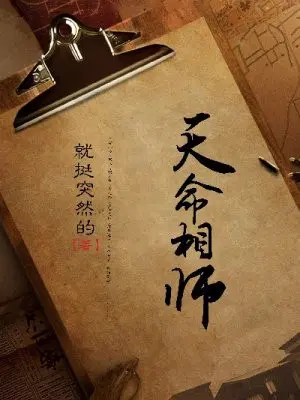 天命相师
就挺突然的
【著】